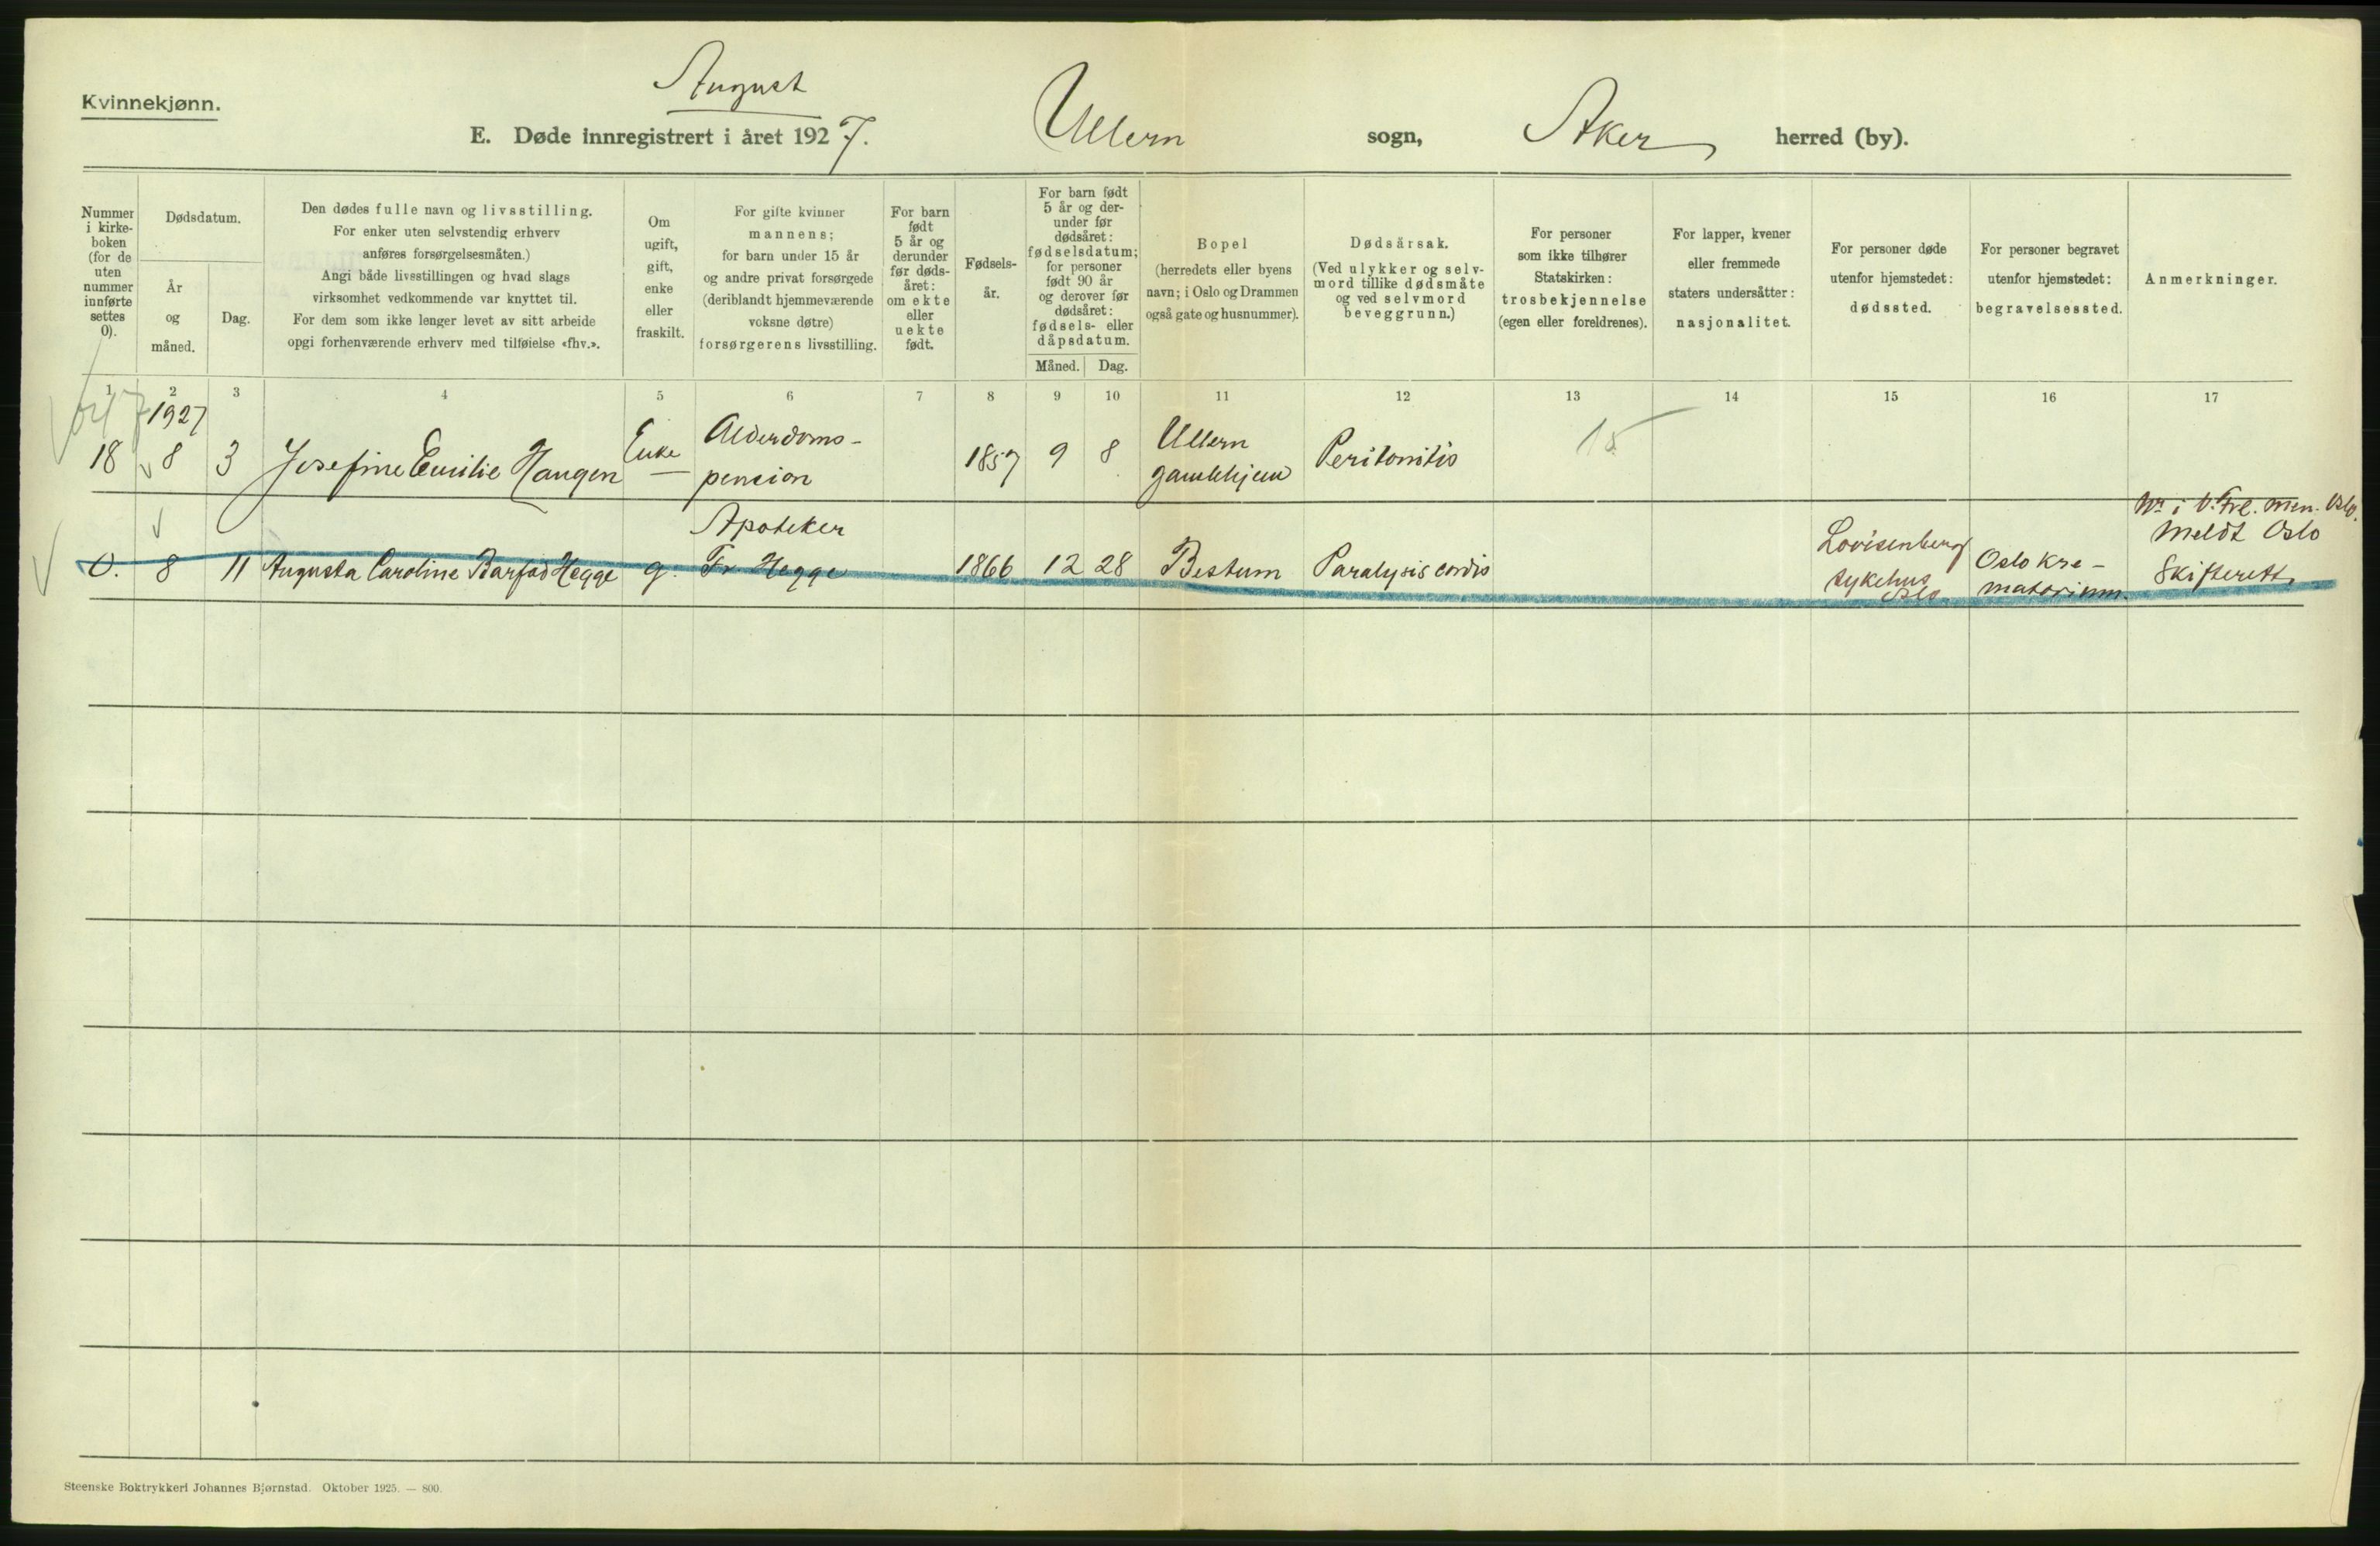 Kvinnekjønn.
August
E. Døde innregistrert i året 1927. Ullern sogn, Aker herred (by).
Nummer i kirke-boken (for de uten nummer innførte settes 0).
Dødsdatum.
År og måned.
Dag.
Den dødes fulle navn og livsstilling.
For enker uten selvstendig erhverv
anføres forsørgelsesmåten.)
Angi både livsstillingen og hvad slags
virksomhet vedkommende var knyttet til.
For dem som ikke lenger levet av sitt arbeide
opgi forhenværende erhverv med tilføielse «fhv.».
Om
ugift,
gift,
enke
eller
fraskilt.
For gifte kvinner
mannens;
for barn under 15 år
og andre privat forsørgede
(deriblandt hjemmeværende
voksne døtre)
forsørgerens livsstilling.
For barn
født
5 år og
derunder
før døds-
året:
om ekte
eller
uekte
født.
Fødsels-
år.
For barn født
5 år og der-
under før
dødsåret:
fødselsdatum;
for personer
født 90 år
og derover før
dødsåret:
fødsels- eller
dåpsdatum.
Måned. Dag.
Bopel
(herredets eller byens
navn; i Oslo og Drammen
også gate og husnummer).
Dødsårsak.
(Ved ulykker og selv-
mord tillike dødsmåte
og ved selvmord
beveggrunn.)
For personer
som ikke tilhører
Statskirken:
trosbekjennelse
(egen eller foreldrenes).
For lapper, kvener
eller fremmede
staters undersåtter:
nasjonalitet.
For personer døde
utenfor hjemstedet:
dødssted.
For personer begravet
utenfor hjemstedet:
begravelsessted.
Anmerkninger.
1 2 3 4 5 6 7 8 9 10 11 12 13 14 15 16 17
1927
18 8 3 Josefine Emilie Haugen Enke Alderdoms-
pension 1857 9 8 Ullern
gamlehjem Peritonitis 15
0. 8 11 Augusta Caroline Barfod Hegge g. Apoteker
Fr Hegge 1866 12 28 Bestum Paralysis cordis Lovisenberg
sykehus
Oslo Oslo kre-
matorium. Nr. i V. Frl. Men. Oslo.
Meldt Oslo
Skifterett.
Steenske Boktrykkeri Johannes Bjørnstad. Oktober 1925. — 800.